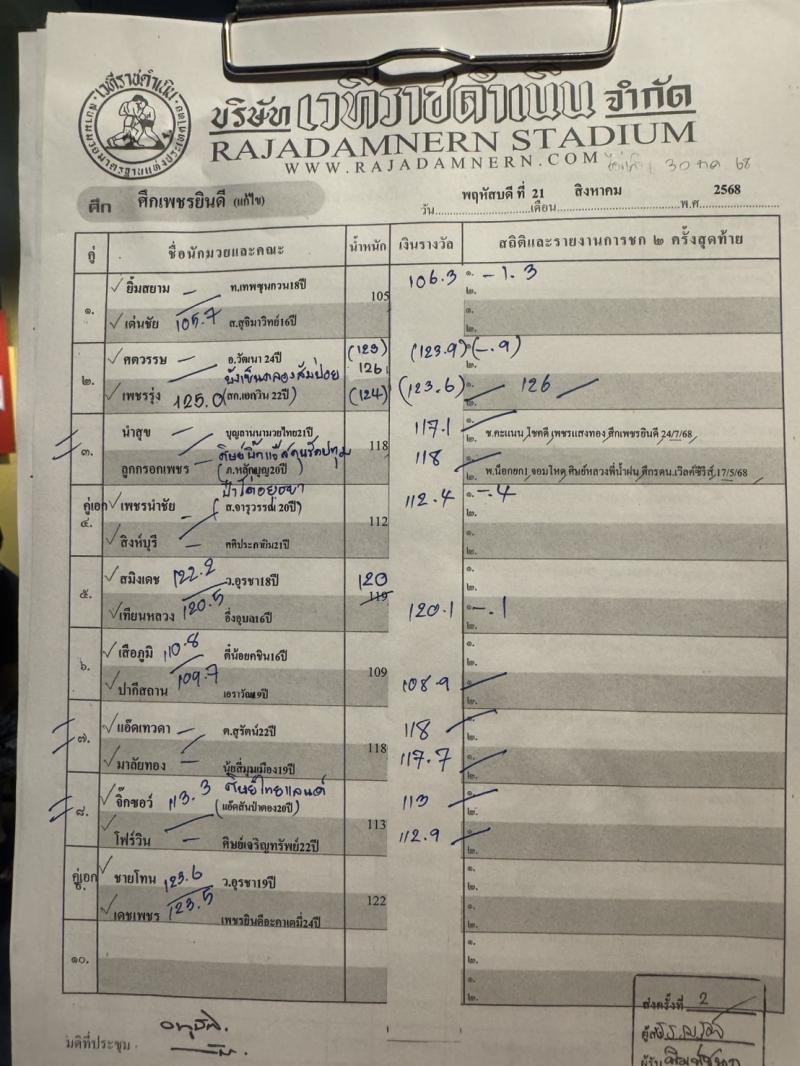 เวทีราชดำเนิน
บริษัท เวทีราชดำเนิน จำกัด
RAJADAMNERN STADIUM
WWW.RAJADAMNERN.COM
30 กค 68
ศึก ศึกเพชรยินดี (แก้ไข)
วัน พฤหัสบดี ที่ 21 เดือน สิงหาคม พ.ศ 2568
คู่ ชื่อนักมวยและคณะ น้ำหนัก เงินรางวัล สถิติและรายงานการชก ๒ ครั้งสุดท้าย
๑. ✓ ยิ้มสยาม – ท.เทพชุนกวน18ปี 105 106.3 ๑. – 1.3
๒.
✓ เด่นชัย 105.7 ส.สุจิมาวิทย์16ปี ๑.
๒.
๒. ✓ ศตวรรษ – อ.วัฒนา 24ปี (123) 126 (123.9) ๑. (–.9)
๒.
บังเข็นคลองส้มป่อย
✓ เพชรรุ่ง 125.0 (สก.เอกวิน 22ปี) (124) (123.6) ๑. 126
๒.
๓. นำสุข – บุญลานนามวยไทย21ปี 118 117.1 ช.คะแนน,โชคดี,เพชรแสงทอง,ศึกเพชรยินดี 24/7/68
ลูกกรอกเพชร – (ภ.หลักบุญ20ปี) 118 พ.น็อกยก1,จอมโหด,ศิษย์หลวงพี่น้ำฝน,ศึกรดน.เวิลด์ซีรีส์,17/5/68
คู่เอก ๔. ✓ เพชรนำชัย (ส.จารุวรรณ 20ปี) 112 112.4 ๑. –.4
๒.
✓ สิงห์บุรี – ศศิประภายิม21ปี ๑.
๒.
๕. ✓ สมิงเดช 122.2 ว.อุรชา18ปี 120 119 ๑.
๒.
✓ เทียนหลวง 120.5 อึ่งอุบล16ปี 120.1 ๑. –.1
๒.
๖. ✓ เสือภูมิ 110.8 ตี๋น้อยคชิน16ปี 109 ๑.
๒.
✓ ปากีสถาน 109.7 เอราวัณ19ปี 108.9 ๑.
๒.
๗. ✓ แอ๊ดเทวดา – ต.สุรัตน์22ปี 118 118 ๑.
๒.
✓ มาลัยทอง – นุ้ยสี่มุมเมือง19ปี 117.7 ๑.
๒.
๘. ✓ จิ๊กซอว์ 113.3 ศิษย์ไทยแลนด์ 113 113 ๑.
(แอ๊ดสันป่าตอง20ปี) ๒.
✓ โฟร์วิน – ศิษย์เจริญทรัพย์22ปี 112.9 ๑.
๒.
คู่เอก ๙. ✓ ชายโทน 123.6 ว.อุรชา19ปี 122 ๑.
๒.
✓ เดชเพชร 123.5 เพชรยินดีอะคาเดมี่24ปี ๑.
๒.
๑๐. ๑.
๒.
๑.
๒.
มติที่ประชุม
ส่งครั้งที่ 2
ผู้ส่ง
ผู้รับ